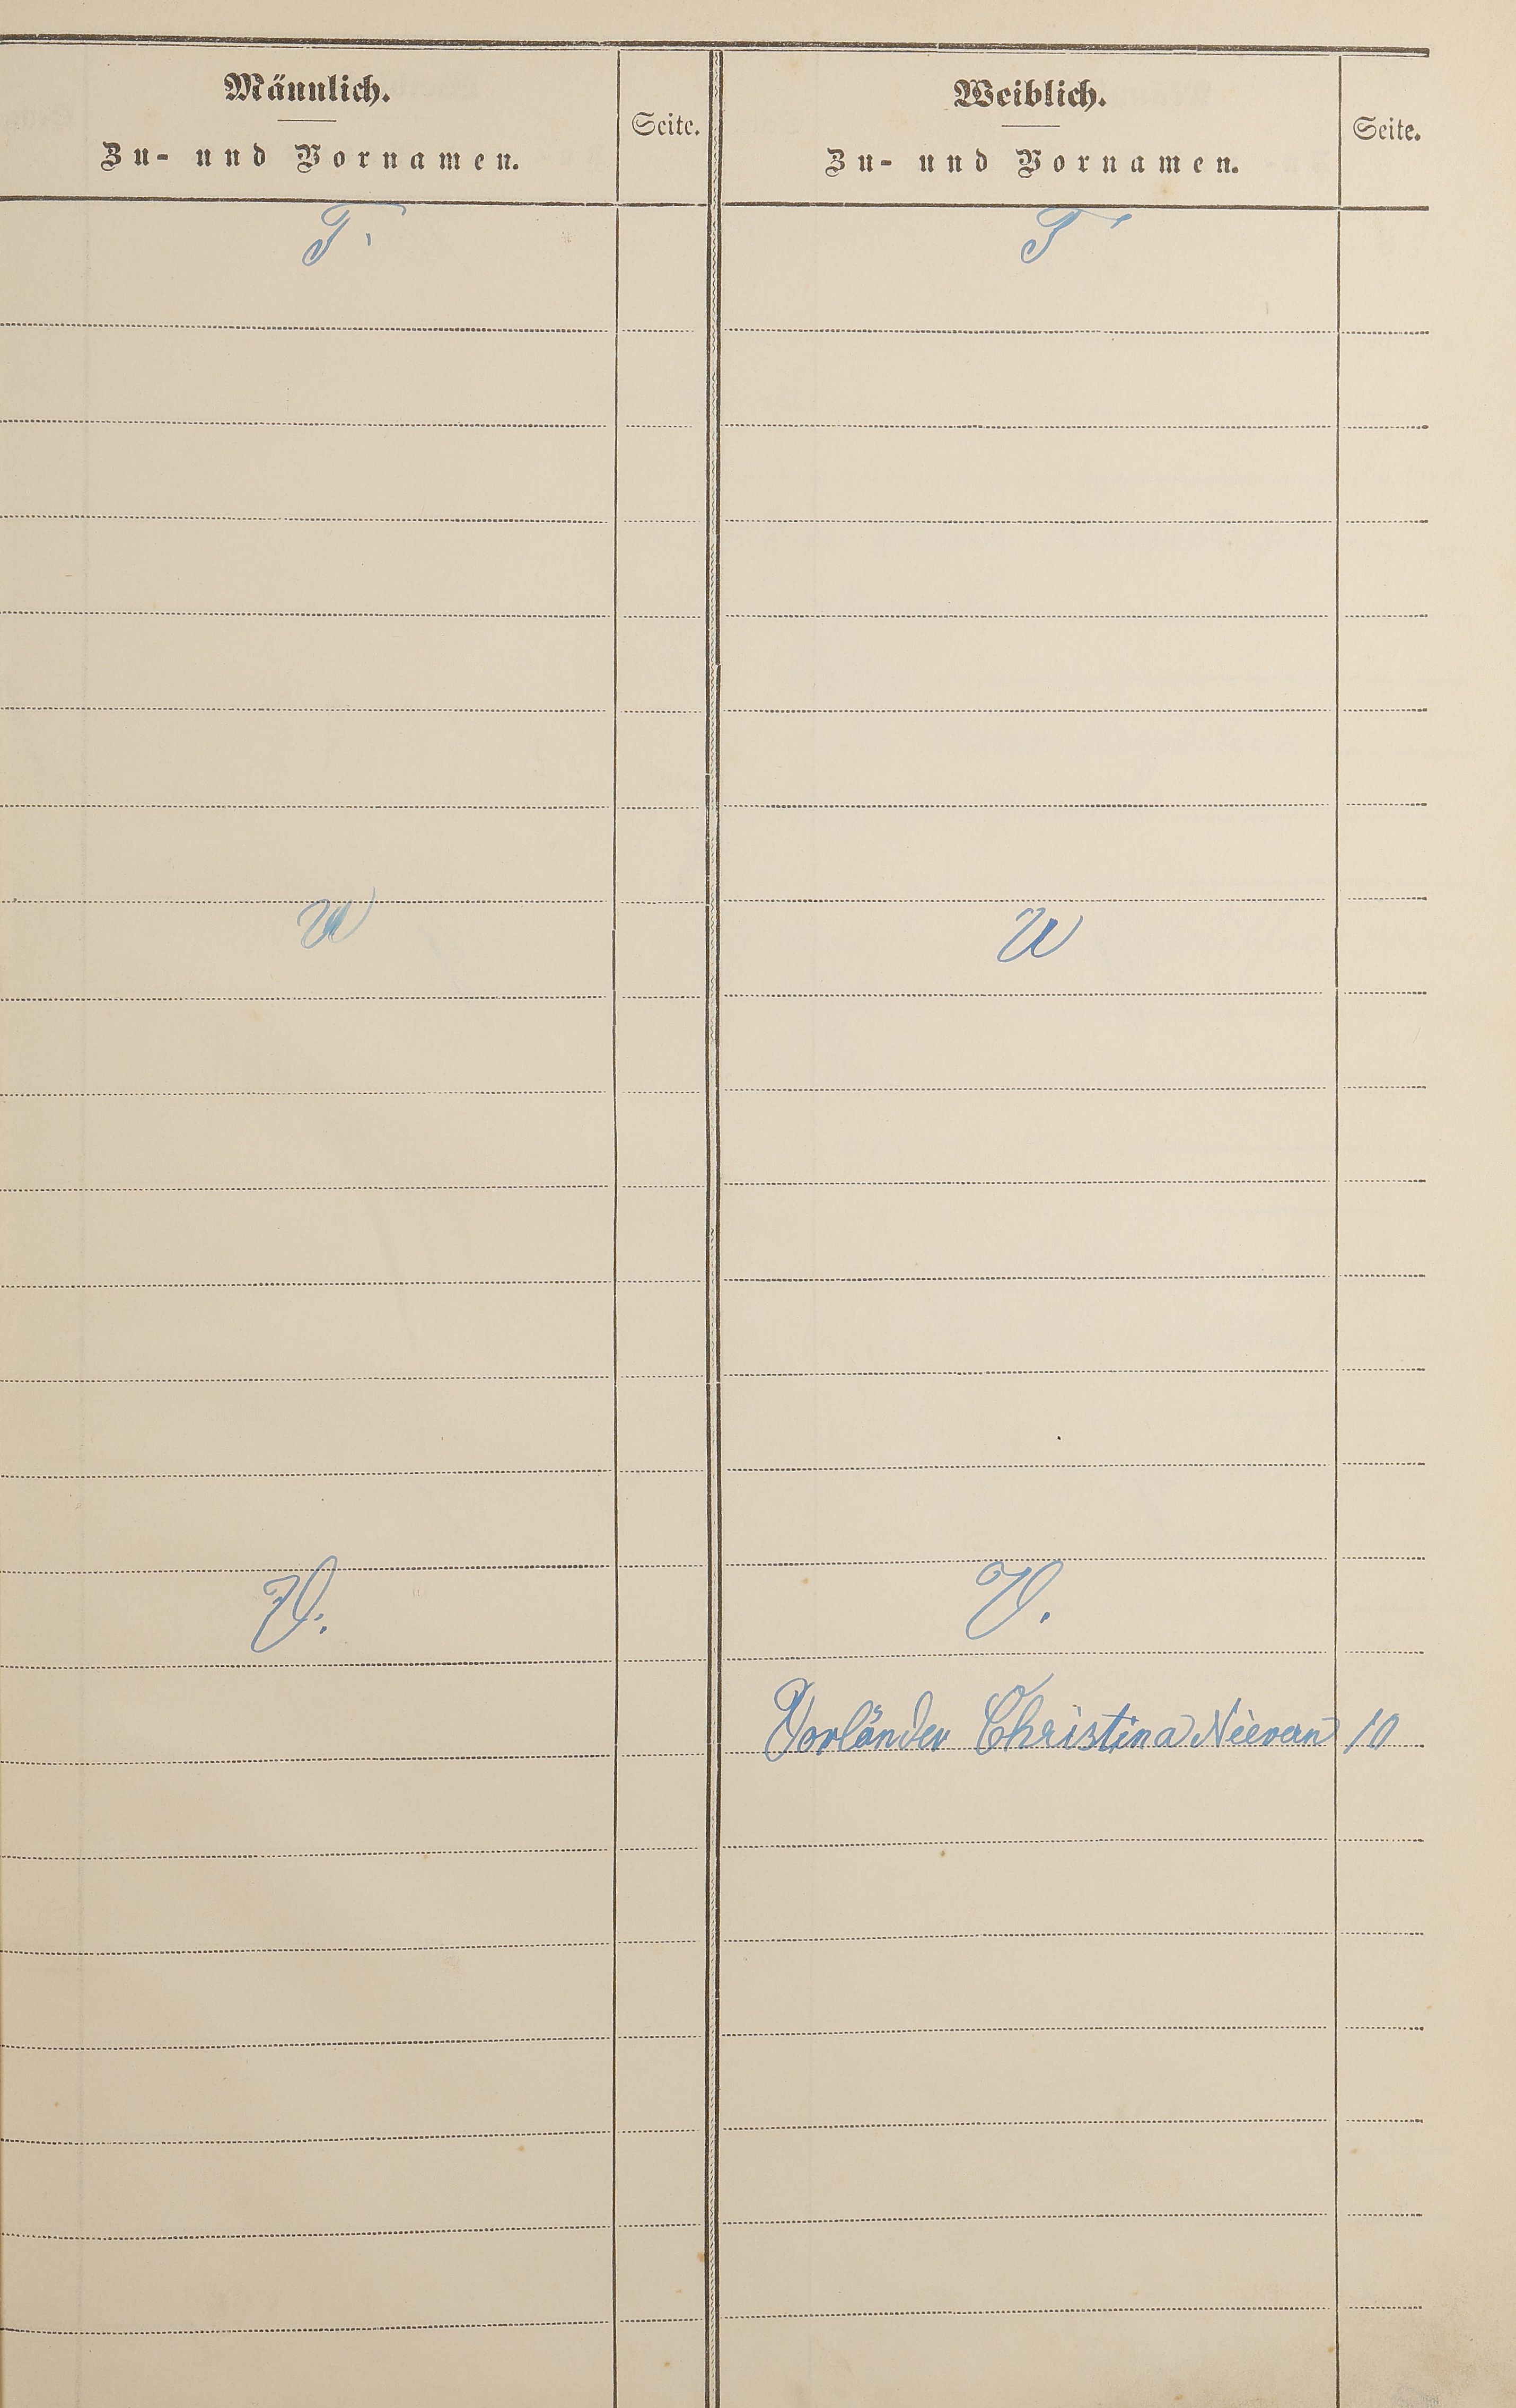 Männlich.
Zu- und Vornamen.
Seite.
Weiblich.
Zu- und Vornamen.
Seite.
T.
T
U
U
V.
V.
Vorländer Christina Nievern 10